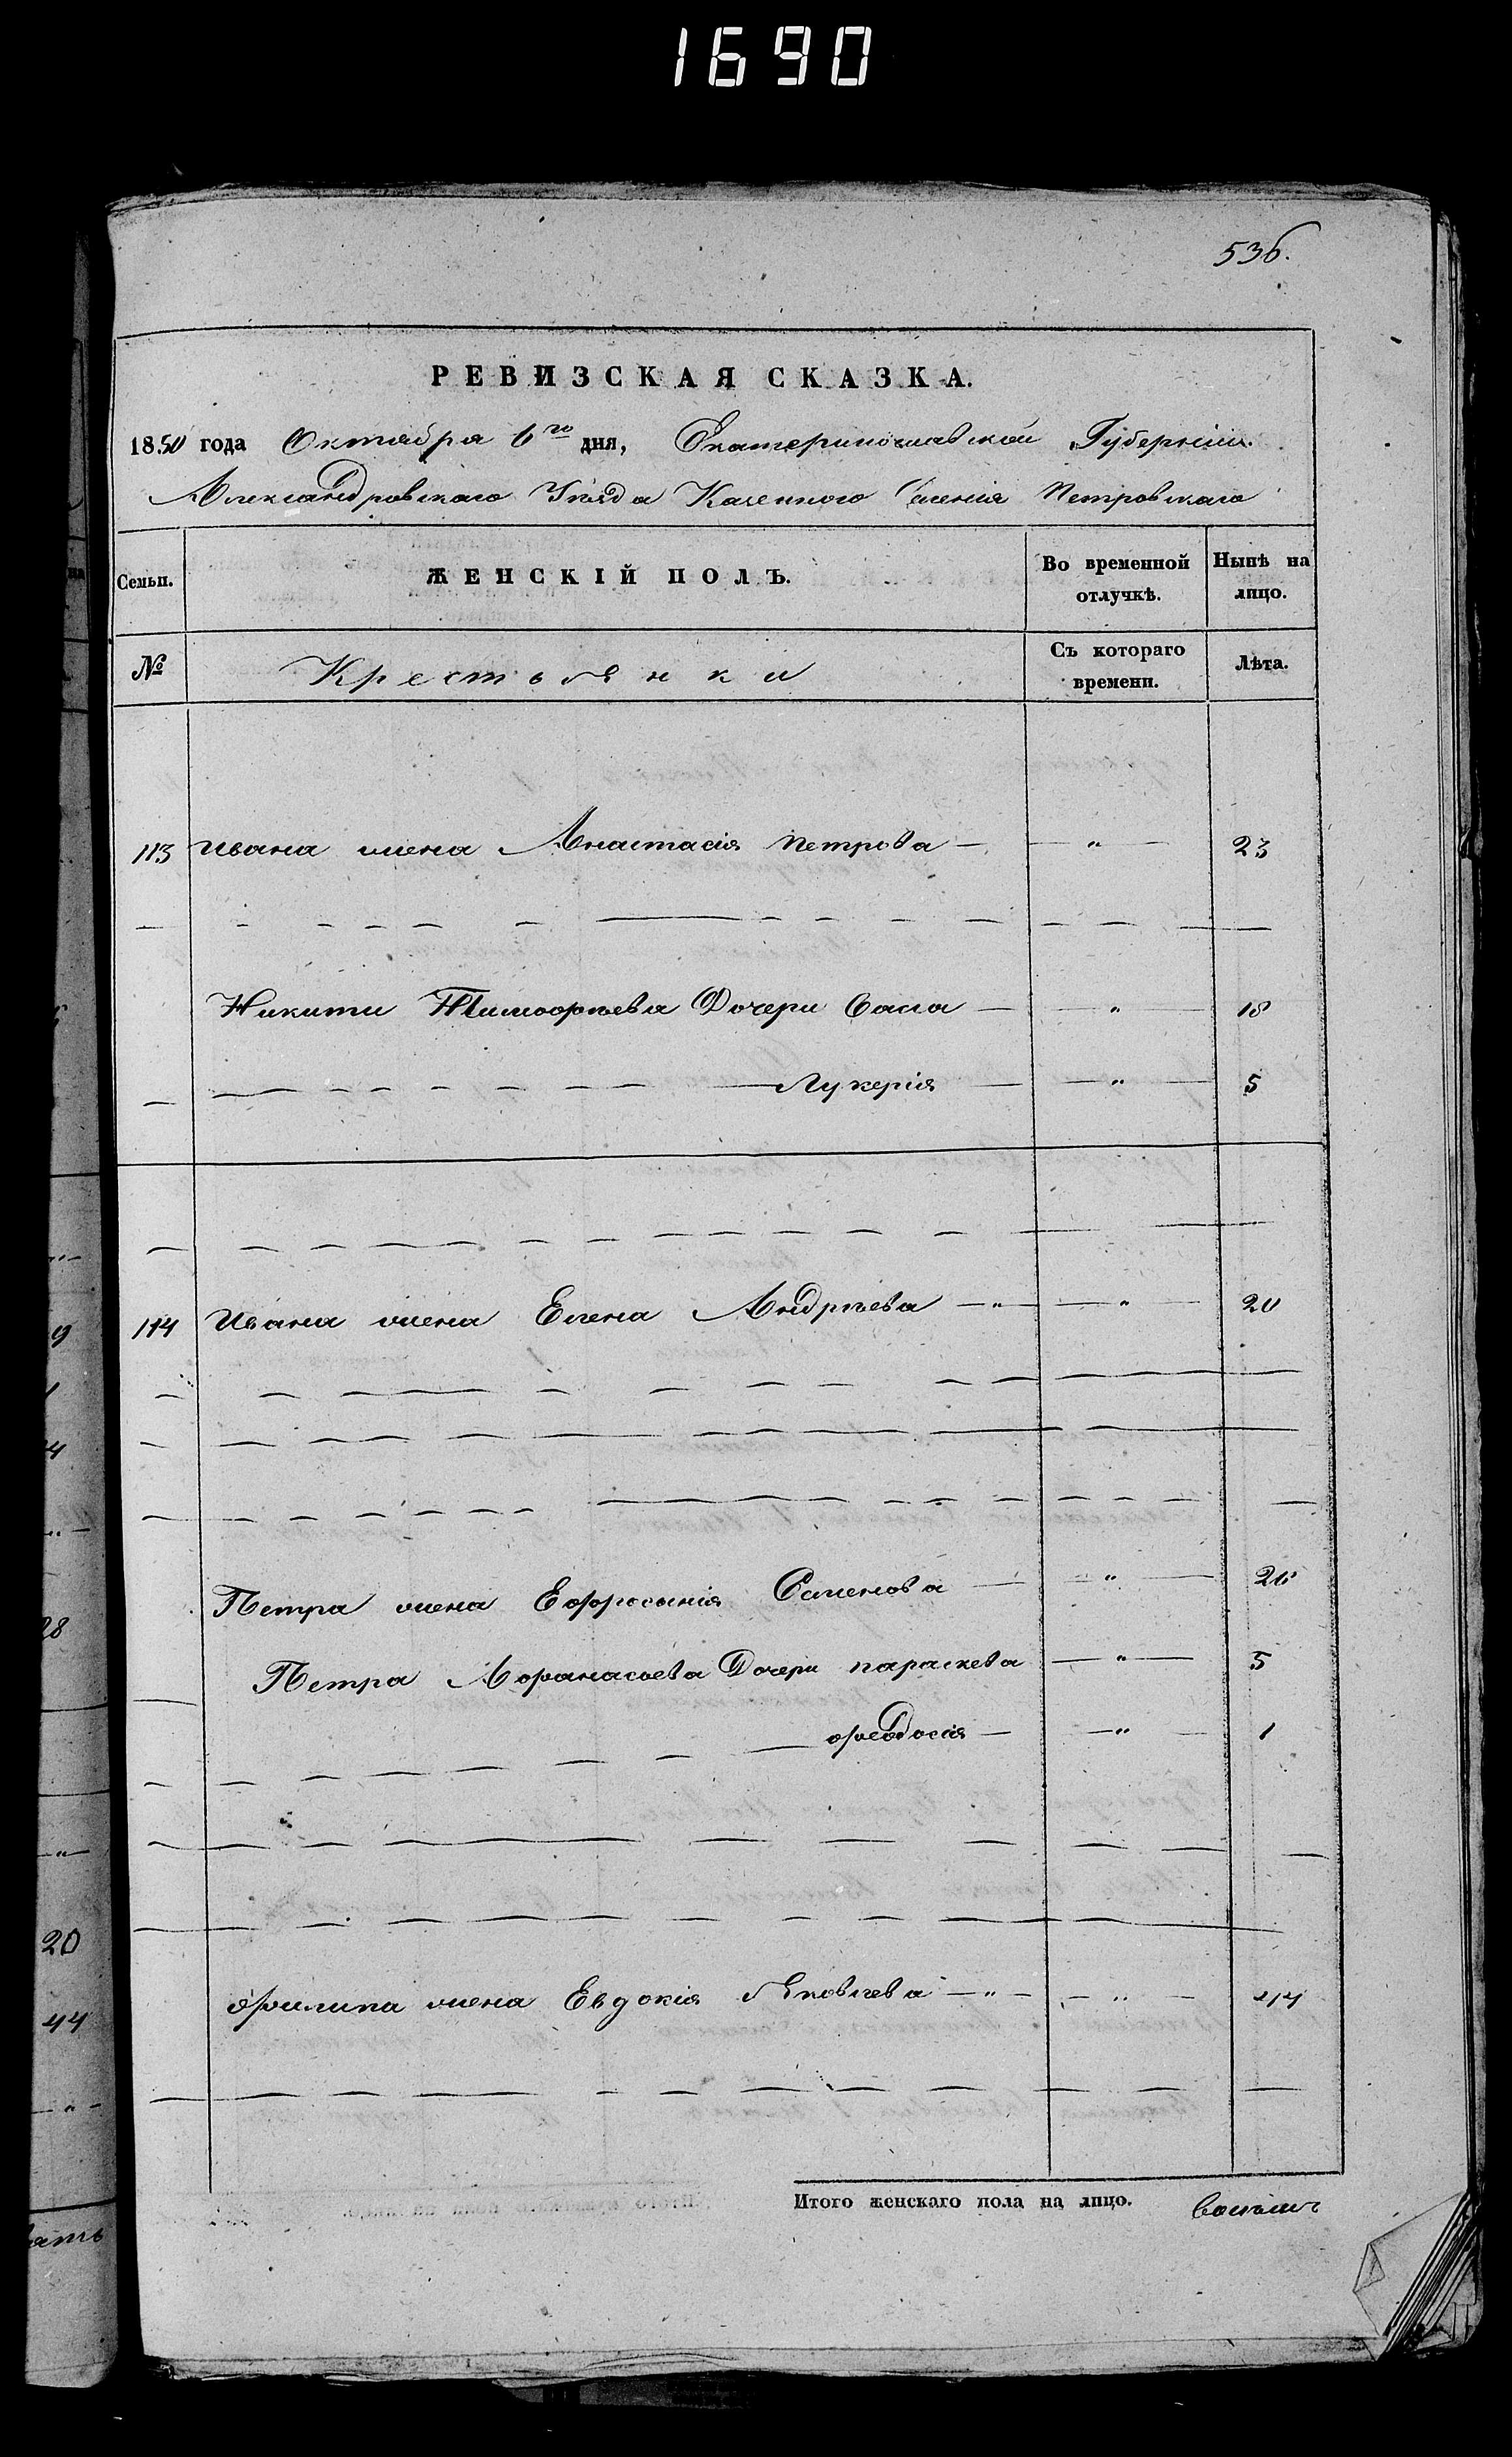 1690
536.
РЕВИЗСКАЯ СКАЗКА.
1850 года Октября 6го дня, Екатеринославской Губернiи.
Александровскаго Уѣзда Казенного Селенiя Петровскаго
Семьи. ЖЕНСКIЙ ПОЛЪ. Во временной отлучкѣ. Нынѣ на лицо.
№ Крестьянки Съ котораго времени. Лѣта.
113 Ивана жена Анастасiя Петрова — — " — 23
Никиты Тимофѣева Дочери — — " — 18
— Лукерiя — — " — 5
114 Ивана жена Елена Андрѣева — " — — " — 20
Петра жена Ефросынiя Семенова — — " — 26
Петра Афанасьева Дочери параскева — " — 5
— феодосiя — — " — 1
филипа жена Евдокiя Яковлева — " — — " — 44
Итого женскаго пола на лицо. восемь
9
1
4
28
20
44
ять